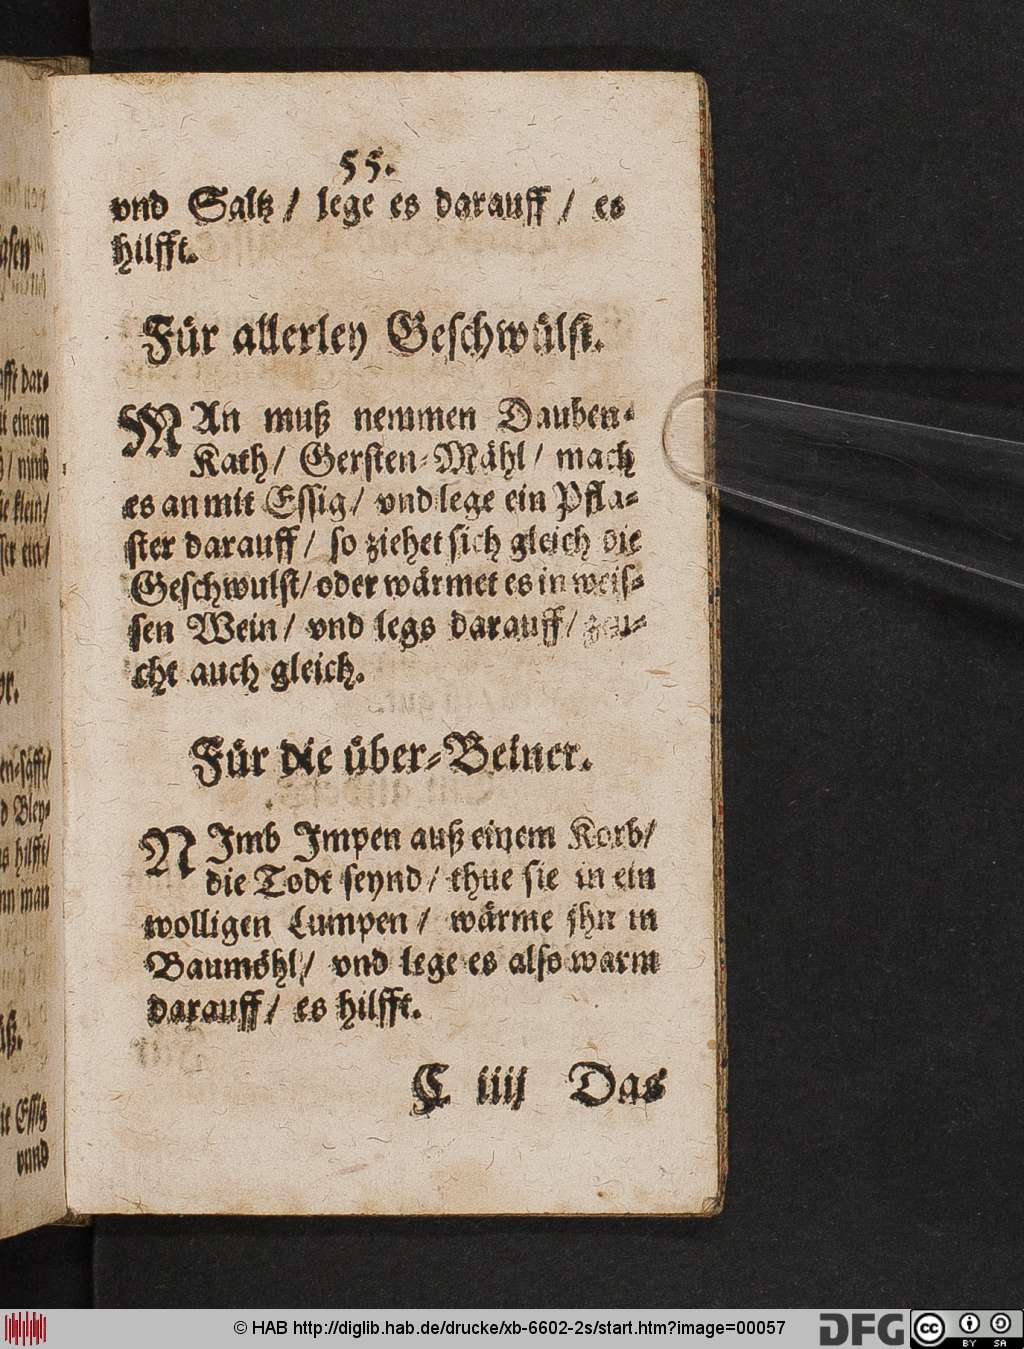 55.
vnd Saltz / lege es darauff / es
hilfft.
Für allerley Geschwülst.
MAn muß nemmen Dauben-
Kath / Gersten-Mähl / mach
es an mit Essig / vnd lege ein Pfla-
ster darauff / so ziehet sich gleich die
Geschwulst / oder wärmet es in weis-
sen Wein / vnd legs darauff / zeu-
cht auch gleich.
Für die über-Beiner.
NJmb Jmpen auß einem Korb /
die Todt seynd / thue sie in ein
wolligen Lumpen / wärme jhn in
Baumöhl / vnd lege es also warm
darauff / es hilfft.
C iiij Das
afft dar-
it einem
klein /
ser ein /
en-safft /
d Bley-
s hilfft /
nn man
Essig
vnnd
© HAB http://diglib.hab.de/drucke/xb-6602-2s/start.htm?image=00057
DFG
cc
BY SA